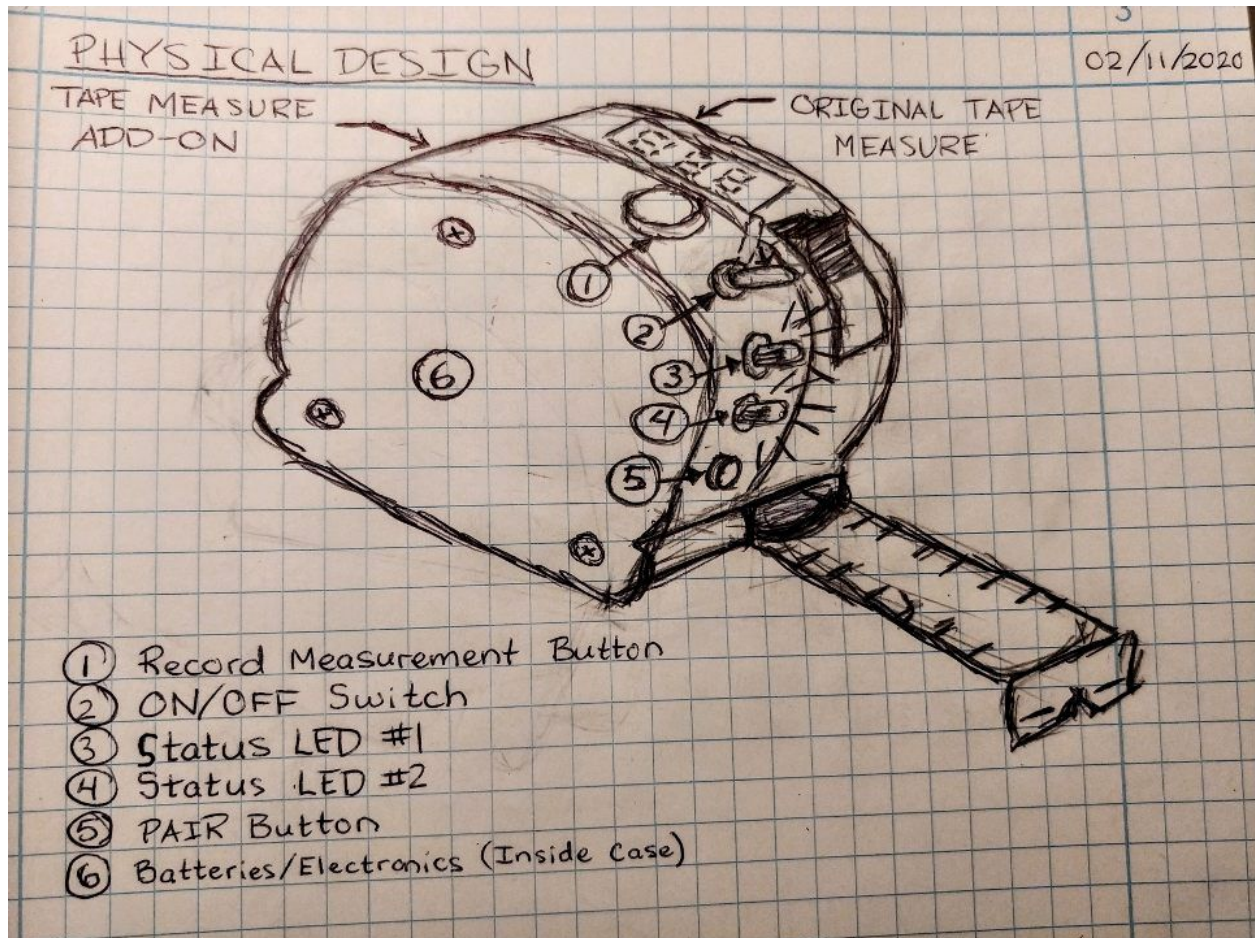 3
PHYSICAL DESIGN
02/11/2020
TAPE MEASURE
ADD-ON
ORIGINAL TAPE
MEASURE
8.8.8
1
2
3
4
5
6
① Record Measurement Button
② ON/OFF Switch
③ Status LED #1
④ Status LED #2
⑤ PAIR Button
⑥ Batteries/Electronics (Inside Case)